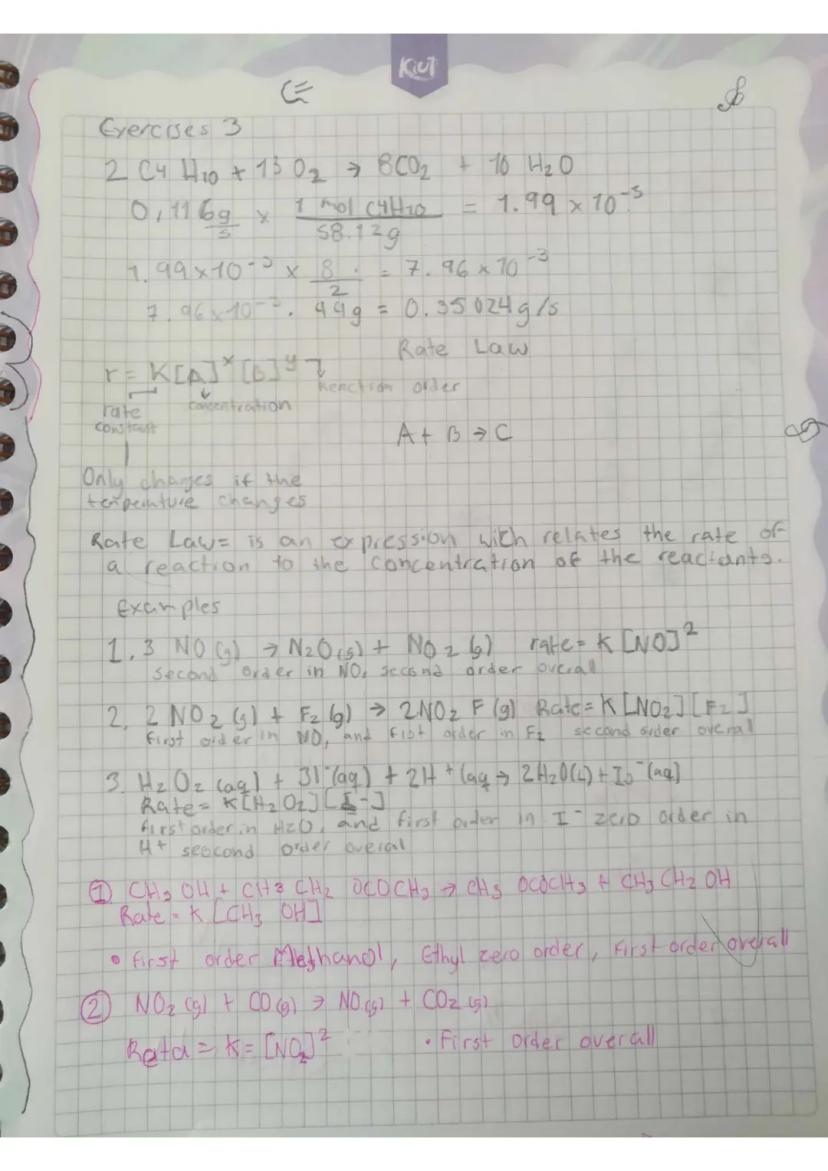 KIUT
Exercises 3
2 C4 H10 + 13 O2 → 8CO2 + 10 H2O
0,116 g/s × 1 mol C4H10 / 58.12g = 1.99 × 10⁻³
1.99×10⁻³ × 8/2 = 7.96 × 10⁻³
7.96×10⁻³ . 44g = 0.35024g/s
Rate Law
r = K[A]ˣ[B]ʸ Reaction order
rate concentration
constant
A + B → C
Only changes if the
temperature changes
Rate Law= is an expression with relates the rate of
a reaction to the concentration of the reactants.
Examples
1. 3 NO(g) → N2O(g) + NO2(g) rate= K [NO]²
second order in NO, second order overall
2. 2 NO2(g) + F2(g) → 2NO2 F(g) Rate= K[NO2][F2]
first order in NO, and first order in F2 second order overall
3. H2O2 (aq) + 3I⁻(aq) + 2H⁺(aq → 2H2O(L) + I3⁻(aq)
Rate= K[H2O2][I-]
first order in H2O, and first order in I⁻ zero order in
H+ seocond order overall
① CH3 OH + CH3 CH2 OCOCH3 → CH3 OCOCH3 + CH3 CH2 OH
Rate = K [CH3 OH]
• first order Methanol, Ethyl zero order, First order overall
② NO2(g) + CO(g) → NO(g) + CO2(g)
Rata = K= [NO2]² • First order overall